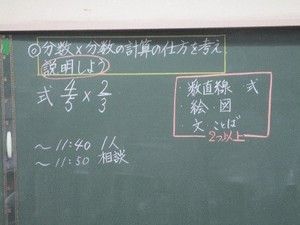 ◎分数×分数の計算の仕方を考え
説明しよう
式 4/5 × 2/3
・数直線 式
・絵・図
・文・ことば
2つ以上
～11:40 1人
～11:50 相談